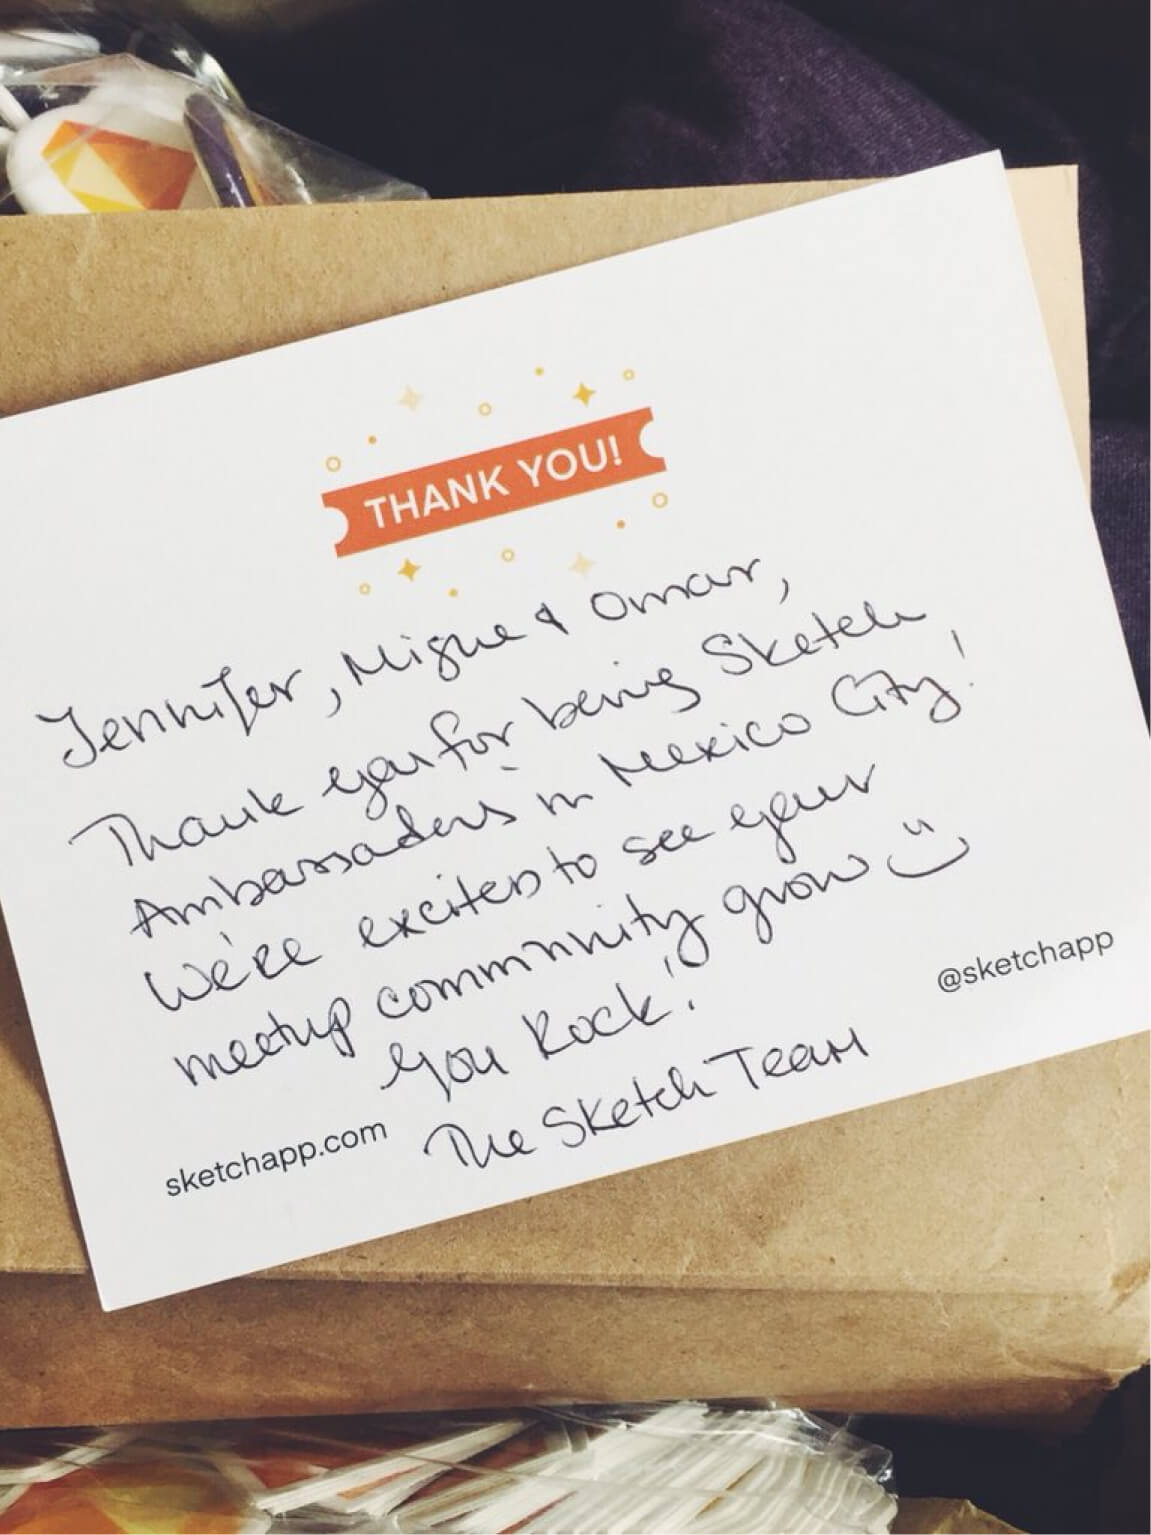 THANK YOU!
Jennifer, Migue & Omar,
Thank you for being Sketch
Ambassadors in Mexico City!
We're excited to see your
meetup community grow :)
You Rock!
The Sketch Team
sketchapp.com
@sketchapp